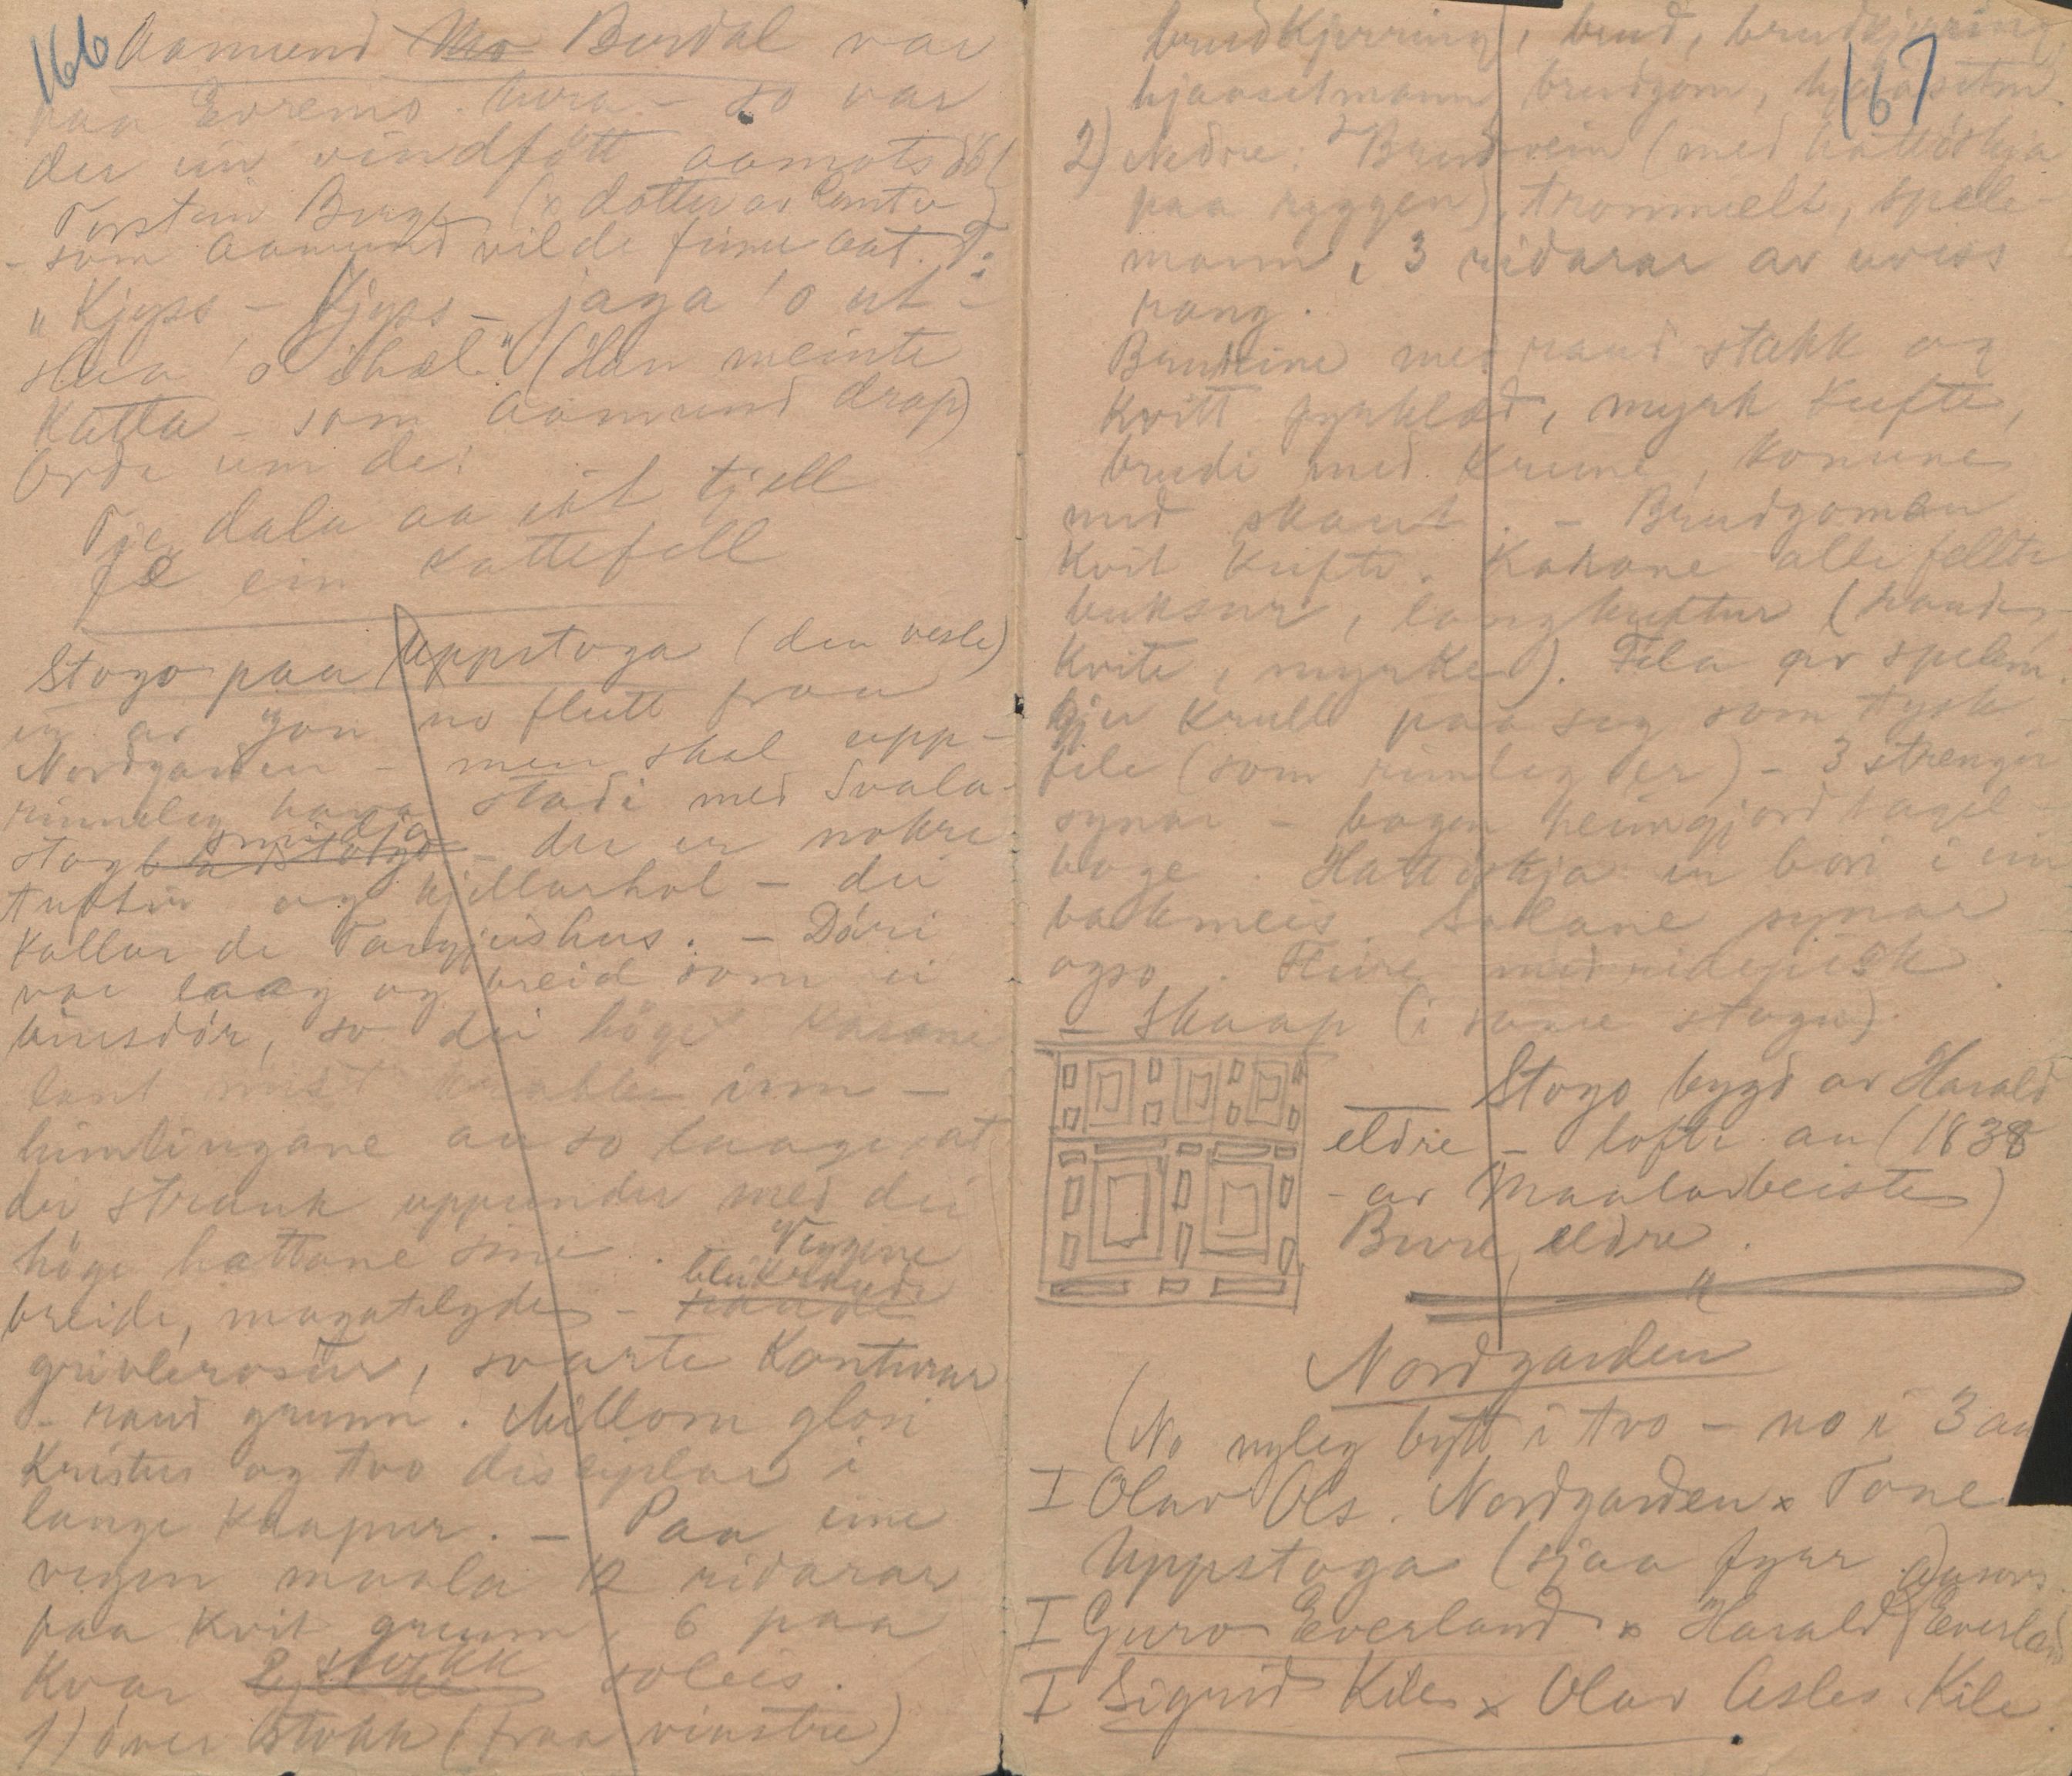 166
Aamund Mo Burdal var
paa Evremo. hera - so var
der ein vindføtt aamotsdøl
Torstein Berge (x dotter av
- som Aamund vilde finne aat. T:
"Kjyss - Kjyss - jaga 'o ut -
slaa 'o ihæl" (Han meinte
Katta - som Aamund drap)
Ordi um dei
dala aa eit tjell
fe ein kattefell
Stogo paa Uppstoga (den vesle)
er av Jon no flutt fraa
Nordgarden - men skal upp-
rinneleg hava stadi med Svala-
stog smidja - der er nokre
tufter og kjellarhol - dei
kallar de Targjeishus. - Döri
var laag og breid som ei
buisdör, so dei höge karane
laut mest krabbe inn -
himlingane au so laage at
dei strauk uppunder med dei
höge hattane sine. - Veggene
breide, magatelgde - bleikraude raude
grivlerosur, svarte Konturar
- raud grunn. Millom glasi
Kristus og tvo disciplar i
lange kaapur. - Paa eine
vegen maala 12 ridarar
paa kvit grunn, 6 paa
kvar bjelke stokk soleis.
1) över stokk (fraa vinstre)
167
brudkjerring, brud, brudkjering
hjaasetmann, brudgom, hjaasetm.
2) Nedre: Brudsvein (med hattöskja
paa ryggen), trommeslt, spele-
mann, 3 ridarar av uviss
rang.
Brureine med raud stakk og
kvitt fyrklæd, myrk kufte,
brudi med krune, konune
med skaut. - Brudgomen
kvit kufte. Karane alle fellte
buksur, langkuftur (raude,
kvite, myrke). Fela av spelem.
hev krull paa seg som tysk
fele (som rimleg er) - 3 strenger
synar - bogen heimgjord hagel-
boge. Hattöskja er bori i ein
bakmeis. Salane synar
ogso. Fleire med ridepisk.
- Skaap (i same stogu).
Stogo bygd av Harald
eldre - lofte au (1838
- av Maalarbeiste)
Bure eldre.
Nordgarden
(No nyleg bytt i tvo - no i 3 au
I Olav Ols. Nordgarden x Tone
Uppstoga (sjaa fyrr
I Guro Everland x Harald Aasmvs Everland
I Sigrid Kile x Olav Asles. Kile